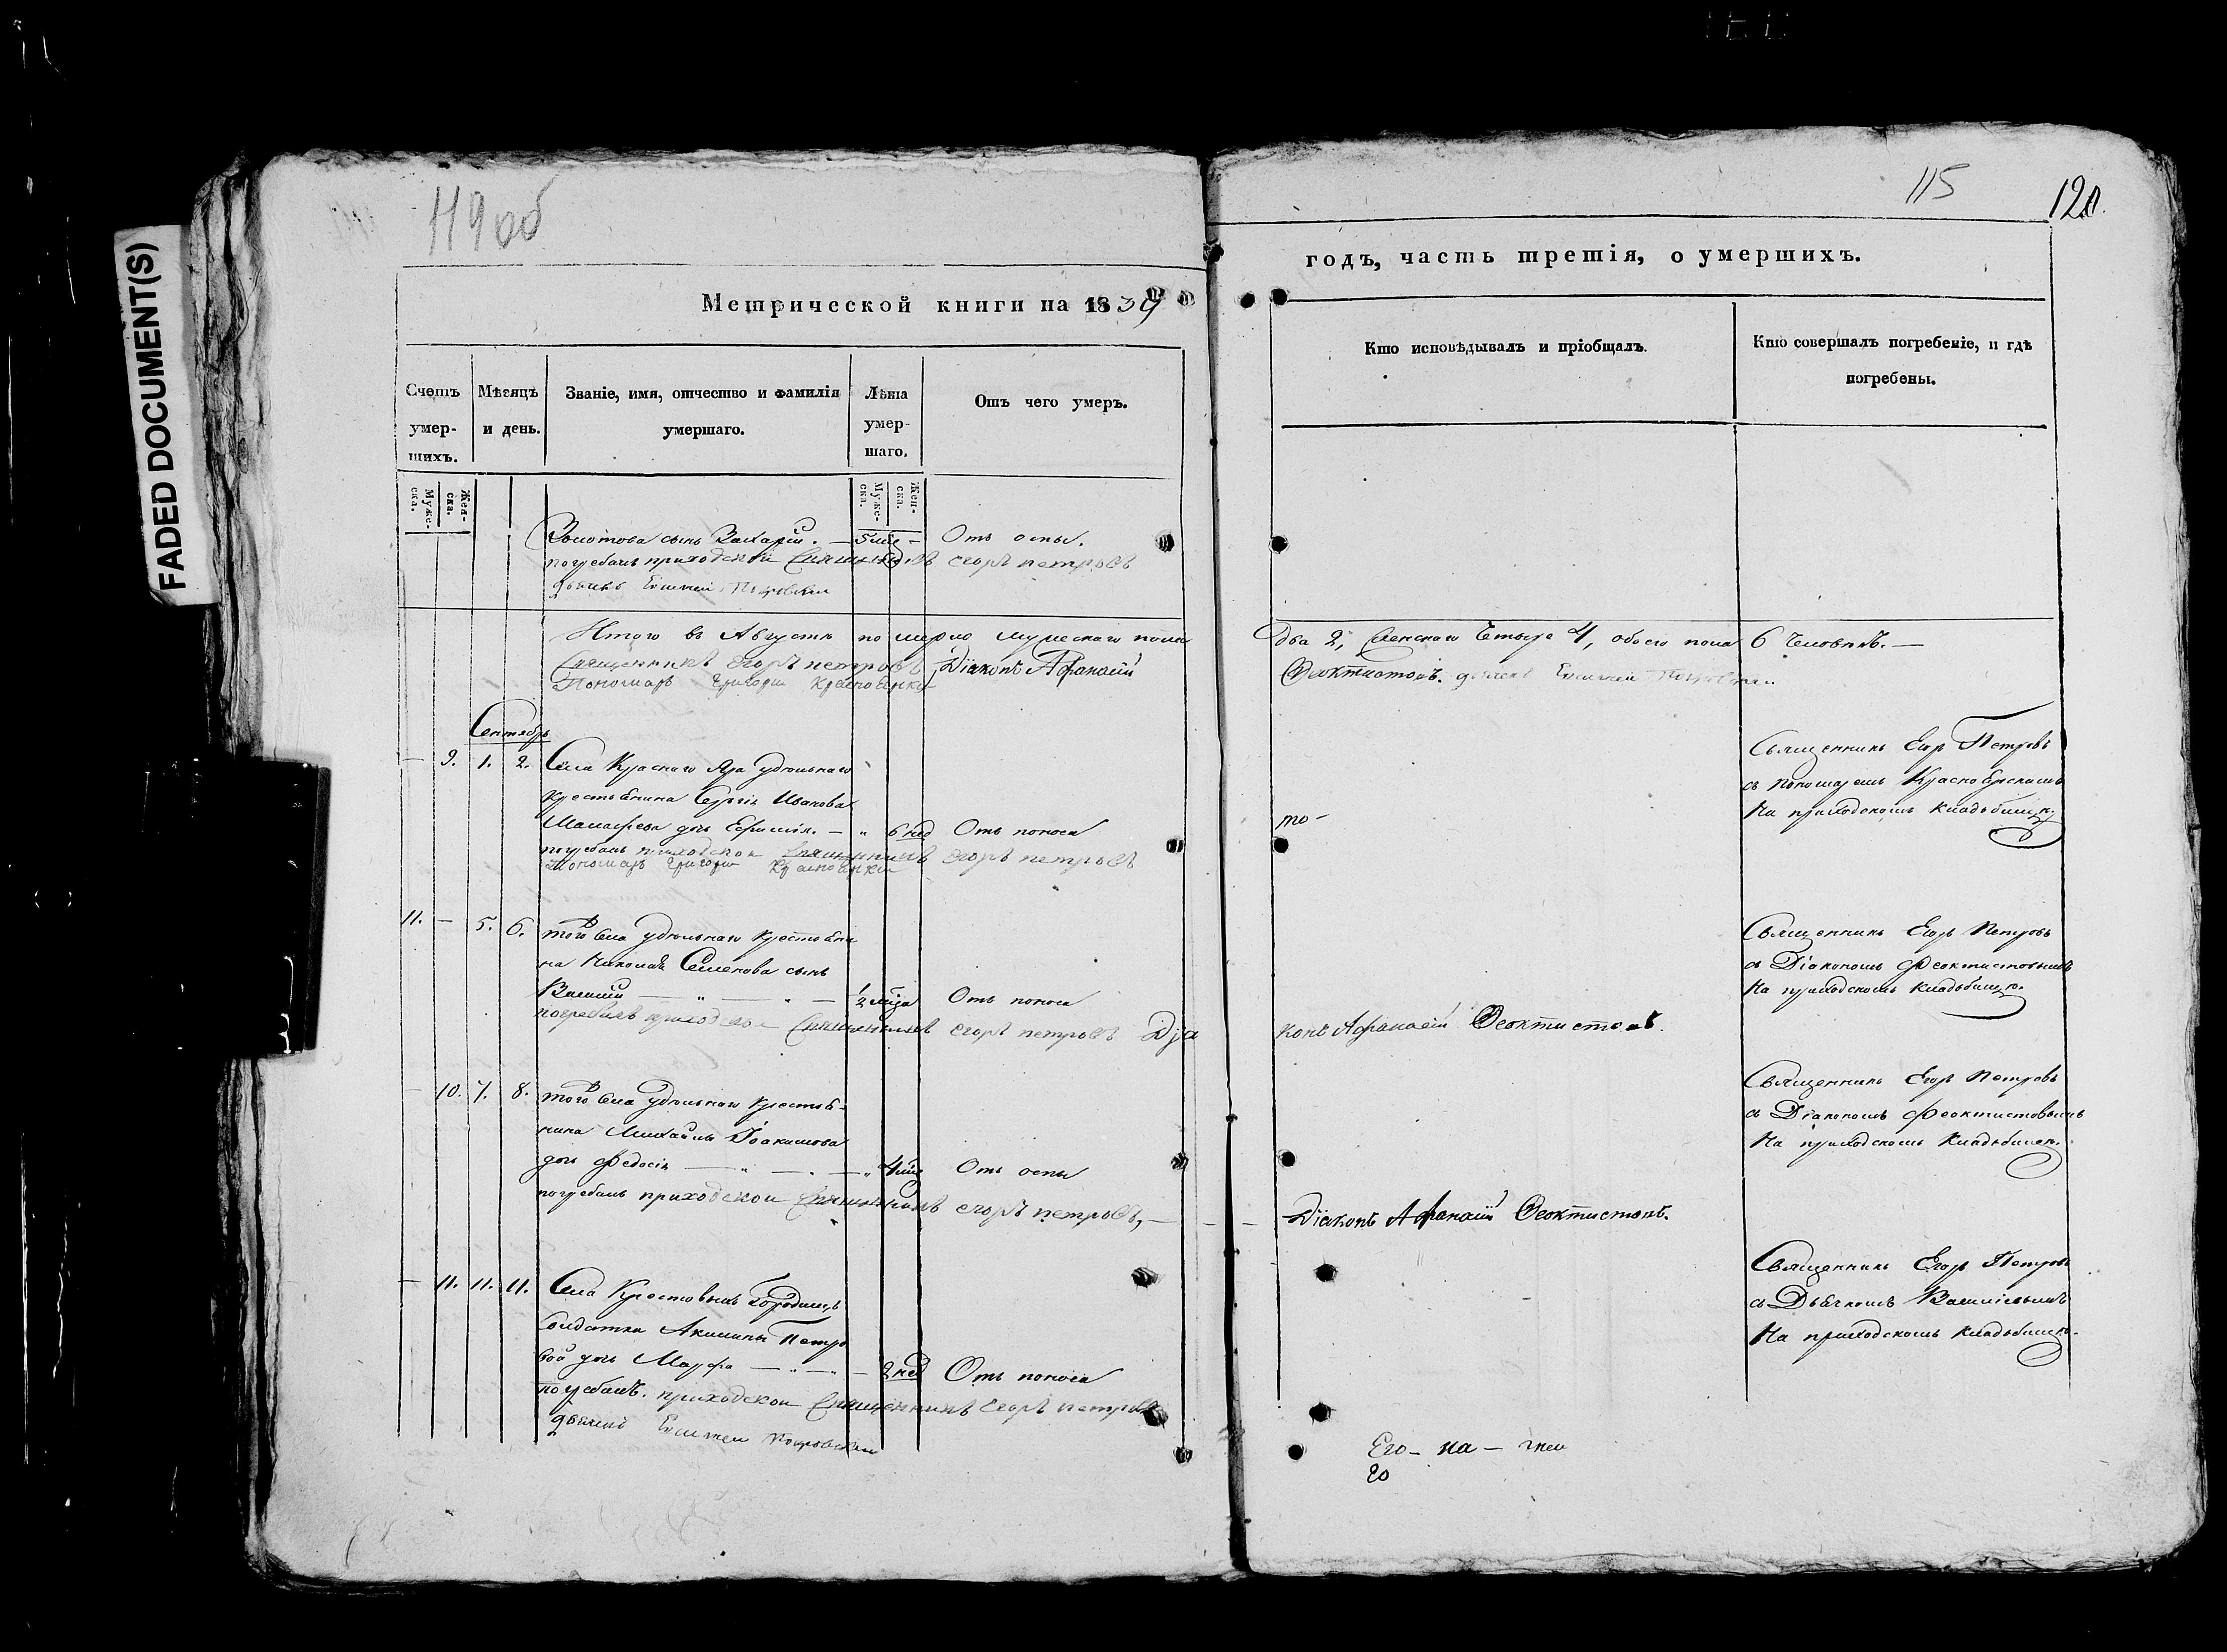 FADED DOCUMENT(S)
119 об
Метрической книги на 1839
Счетъ умер- шихъ.
Мѣсяцъ и день.
Званіе, имя, отчество и фамилія умершаго.
Лѣта умер- шаго.
Отъ чего умеръ.
Муже- ска.
Жен- ска.
Муже- ска.
Жен- ска.
сынъ Захарій. — 5 — Отъ оспы.
погребалъ приходской Священникъ Егоръ Петровъ
дьячекъ Покровскій
Итого въ Августѣ померло мужескаго пола
Священникъ Егоръ Петровъ Діаконъ Афанасій
Пономарь Григорій
Сентябрь
— 9. 1. 2. Села Краснаго Яра удѣльнаго
крестьянина Сергія Иванова
дочь — " 6 нед Отъ поноса
погребалъ приходской Священникъ Егоръ Петровъ
Пономарь Григорій
11. — 5. 6. того села удѣльнаго крестьяни
на Николая Семенова сынъ
Василій — " — " — 1/2 мѣца Отъ поноса
погребалъ приходской Священникъ Егоръ Петровъ Діа
— 10. 7. 8. того села удѣльнаго крестья-
нина Михайлы Іоакимова
дочь Федосія — " — " — " 4 Отъ оспы
погребалъ приходской Священникъ Егоръ Петровъ, —
— 11. 11. 11. Села Крестовыхъ Городищъ
солдатки Акилины Петро
вой дочь Марфа — " — " — 2 нед Отъ поноса
погребалъ. приходской Священникъ Егоръ Петровъ
дьячекъ Покровскій
115
120.
годъ, часть третія, о умершихъ.
Кто исповѣдывалъ и пріобщалъ.
Кто совершалъ погребеніе, и гдѣ погребены.
два 2, женскаго четыре 4, обоего пола 6 человѣкъ. —
Феоктистовъ. дьячекъ Покровскій
Священникъ Егоръ Петровъ
съ пономаремъ
На приходскомъ кладбищѣ
то -
Священникъ Егоръ Петровъ
съ Діакономъ Феоктистовымъ
На приходскомъ кладбищѣ.
конъ Афанасій Феоктистовъ.
Священникъ Егоръ Петровъ
съ Діакономъ Феоктистовымъ
На приходскомъ кладбищѣ.
Діаконъ Афанасій Феоктистовъ.
Священникъ Егоръ Петровъ
съ Дьячкомъ Васильевымъ
На приходскомъ кладбищѣ.
Его — на —
го